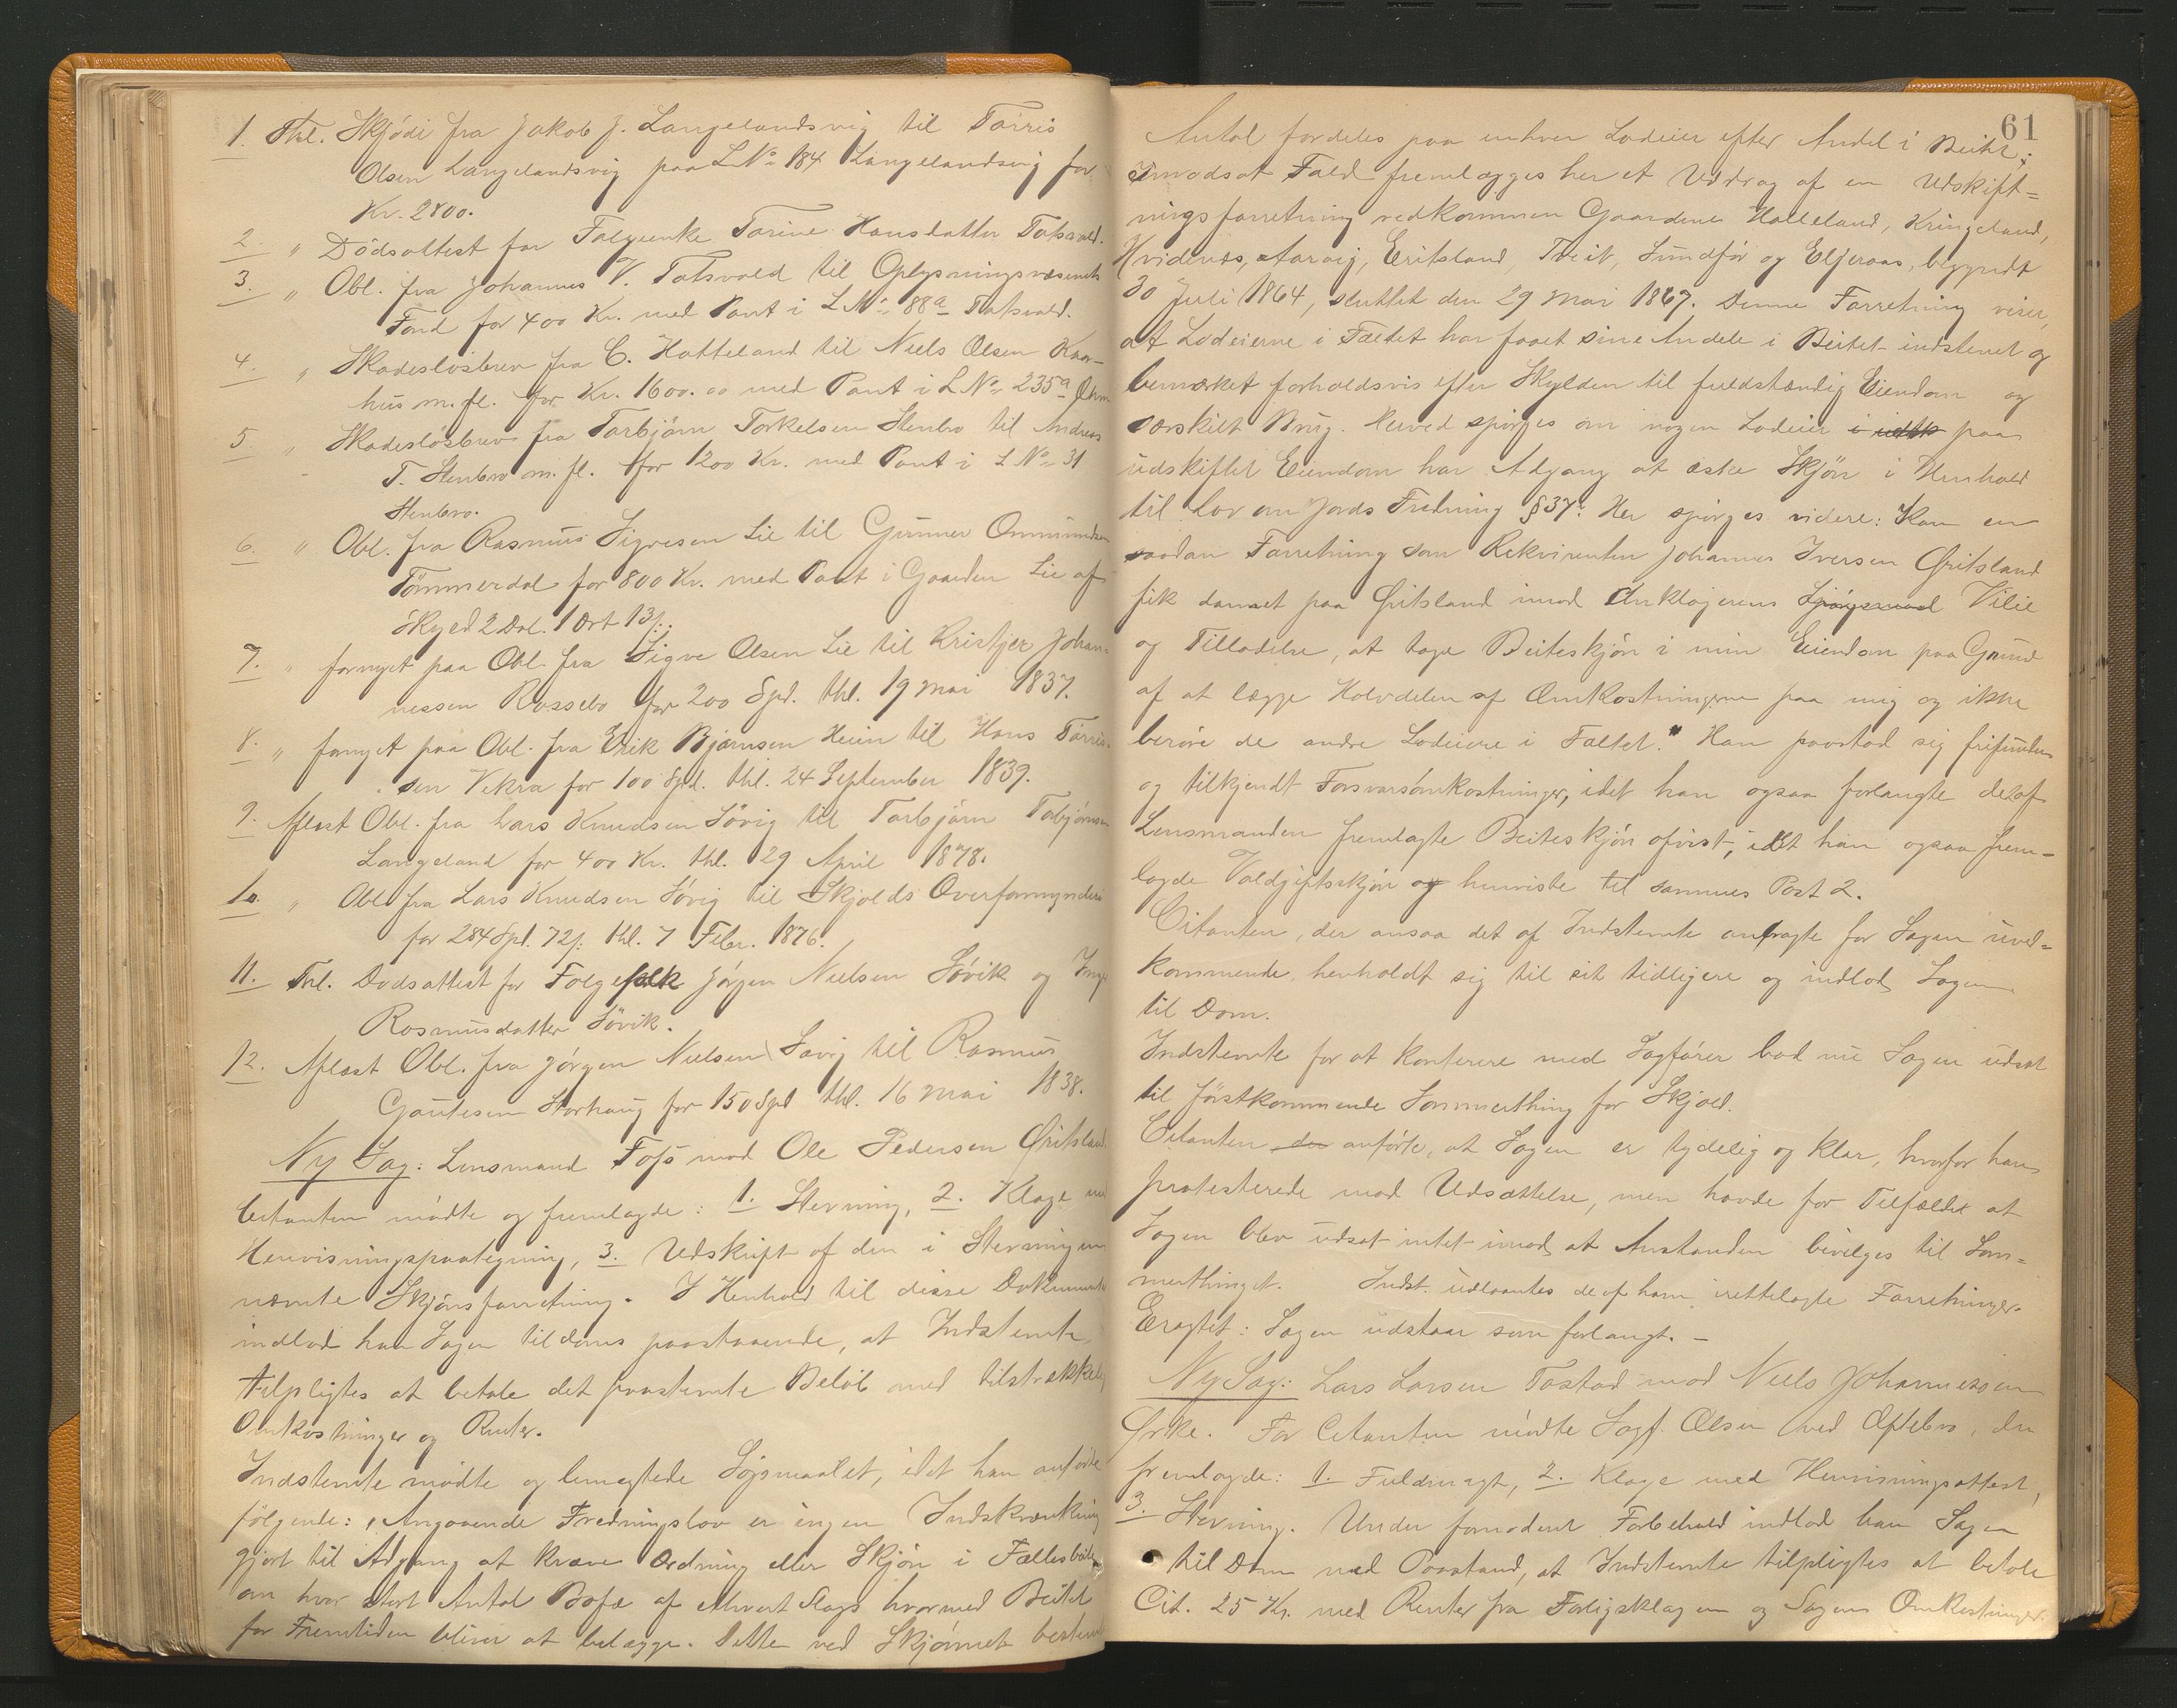 1. Thl. Skjöde fra Jakob J. Langelandsvig til Torris
Olsen Langelandsvig paa L No 184 Langelandsvig for
Kr. 2800.
2. " Dödsattest for Folgeenke Torine Hansdatter Totsvold.
3. " Obl. fra Johannes V. Totsvold til Oplysningsvæsenets
Fond for 400 Kr. med Pant i L No 88a Totsvold.
4. " Skadeslösbrev fra C. Hatteland til Niels Olsen Kaar-
hus m. fl. for Kr. 1600.00 med Pant i L No 235a
5. " Skadeslösbrev fra Torbjörn Torkelsen Stenbro til Andreas
T. Stenbro m. fl. for 1200 Kr. med Pant i L No 31
Stenbro.
6. " Obl. fra Rasmus Sigvesen Lie til Gunner Ommundsen
Tömmerdal for 800 Kr. med Pant i Gaarden Lie af
Skyld 2 Dal. 1 Ort 13 s.
7. " fornyet paa Obl. fra Sigve Olsen Lie til Kristjer Johan-
nessen Rossebo for 200 Spd. thl. 19 Mai 1837.
8. " fornyet paa Obl. fra Erik Bjørnsen Heien til Hans Torris-
sen Vikra for 100 Spd. thl. 24 September 1839.
9. Aflæst Obl. fra Lars Knudsen Sövig til Torbjörn Torbjörnsen
Langeland for 400 Kr. thl. 29 April 1878.
10. " Obl. fra Lars Knudsen Sövig til Skjolds Overformynderi
for 284 Spd. 72 s. thl. 7 Febr. 1876.
11. Thl. Dødsattest for Folgefolk Jörgen Nielsen Sövik og Inger
Rasmusdatter Sövik.
12. Aflæst Obl. fra Jörgen Nielsen Sövig til Rasmus
Gautesen Storhaug for 150 Spd thl. 16 Mai 1838.
Ny Sag: Lensmand Foss mod Ole Pedersen Öritsland
Citanten mödte og fremlagde: 1. Stevning, 2. Klage med
Henvisningspaategning, 3. Udskrift af den i Stevningen
nævnte Skjönsforretning. I Henhold til disse Dokumenter
indlod han Sagen til Doms paastaaende, at Indstevnte
tilpligtes at betale det paastevnte Belöb med tilstrækkelig
Omkostninger og Renter.
Indstevnte mödte og benegtede Søgsmaalet, idet han anförte
fölgende: "Angaaende Fredningslov er ingen Indskrænkning
gjort til Adgang at kræve Ordning eller Skjön i Fællesbeite
om hvor stort Antal Bofæ af ethvert Slags hvormed Beitet
for Fremtiden bliver at belægge. Dette ved Skjönnet bestemte
61
Antal fordeles paa enhver Lodeier efter Andel i Beitet;
I modsat Fald fremlægges her et Uddrag af en Udskift-
ningsforretning vedkommen Gaardene Halleland, Kringeland,
Hvidenæs, Aarvig, Eritsland, Tveit, Sundför og Eljeraas, begyndt
30 Juli 1864, sluttet den 29 Mai 1867. Denne Forretning viser,
at Lodeierne i Fæltet har faaet sine Andele i Beitet indstenet og
bemærket forholdsvis efter Skylden til fuldstændig Eiendom og
særskilt Brug. Herved spörges om nogen Lodeier i udsk paa
udskiftet Eiendom har Adgang at æske Skjön i Henhold
til Lov om Jords Fredning § 37? Her spörges videre: Kan en
saadan Forretning som Rekvirenten Johannes Iversen Öritsland
fik dannet paa Öritsland imod Anklagerens Sjøgsmaal Vilie
og Tilladelse, at tage Beiteskjön i min Eiendom paa Grund
af at lægge Halvdelen af Omkostningerne paa mig og ikke
beröre de andre Lodeiere i Faltet." Han paastod sig frifunden
og tilkjendt Forsvarsomkostninger, idet han ogsaa forlangte det af
Lensmanden fremlagte Beiteskjön ofvist, idet han ogsaa frem-
lagde Voldgiftsskjön og henviste til sammes Post 2.
Citanten, der ansaa det af Indstevnte anfragte for Sagen uved-
kommende, henholdt sig til sit tidligere og indlod Sagen
til Dom.
Indstevnte for at konferere med Sagförer bad nu Sagen udsat
til förstkommende Sommerthing for Skjold.
Citanten der anförte, at Sagen er tydelig og klar, hvorfor han
protesterede mod Udsættelse, men havde for Tilfældet at
Sagen blev udsat intet imod, at Anstanden bevilges til Som-
merthinget. Indst. udlaantes de af ham irettelagte Forretninger.
Eragtet: Sagen udstaar som forlangt. -
Ny Sag: Lars Larsen Tostad mod Niels Johannessen
Örke. For Citanten mödte Sagf. Olsen ved Öftebro, der
fremlagde: 1. Fuldmagt, 2. Klage med Henvisningsattest,
3. Stevning. Under fornödent Forbehold indlod han Sagen
til Dom med Paastand, at Indstevnte tilpligtes at betale
Cit. 25 Kr. med Renter fra Forligsklagen og Sagens Omkostninger.